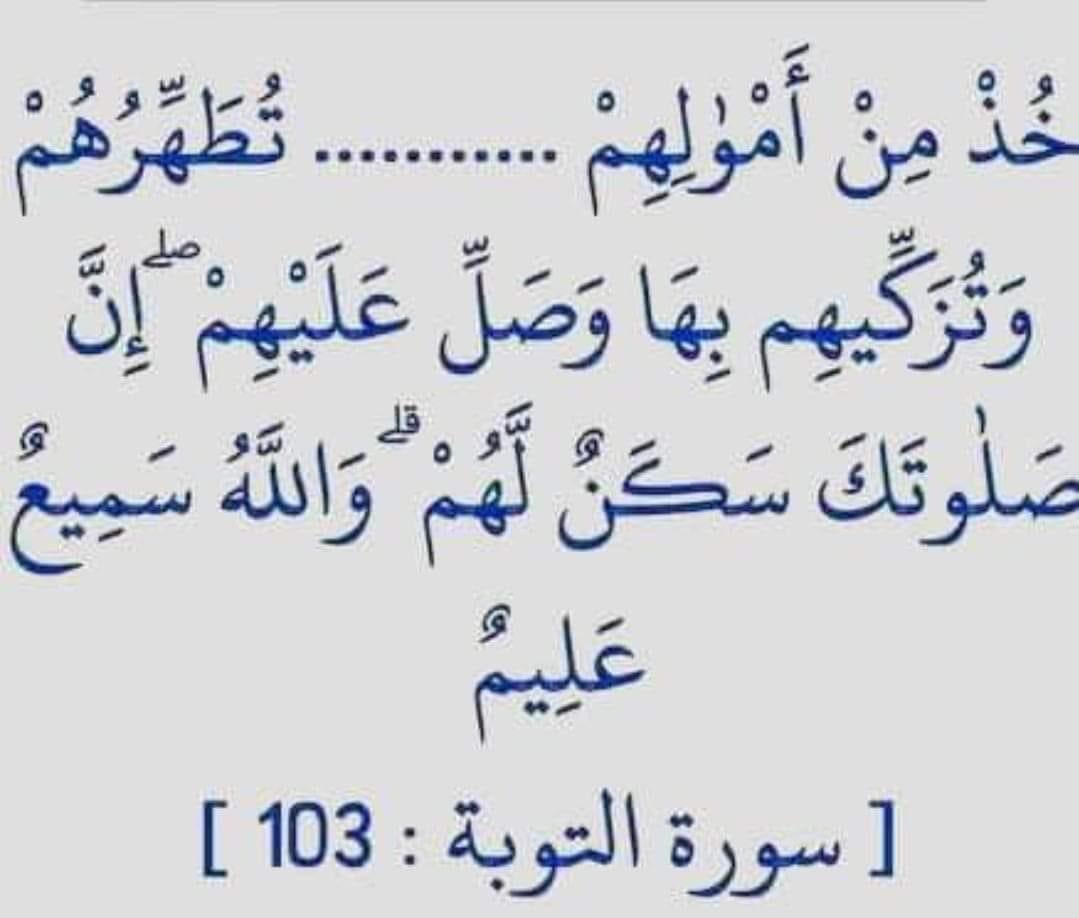 خُذْ مِنْ أَمْوَٰلِهِمْ ........... تُطَهِّرُهُمْ
وَتُزَكِّيهِم بِهَا وَصَلِّ عَلَيْهِمْ ۖ إِنَّ
صَلَوٰتَكَ سَكَنٌ لَّهُمْ ۗ وَاللَّهُ سَمِيعٌ
عَلِيمٌ
[ سورة التوبة : 103 ]